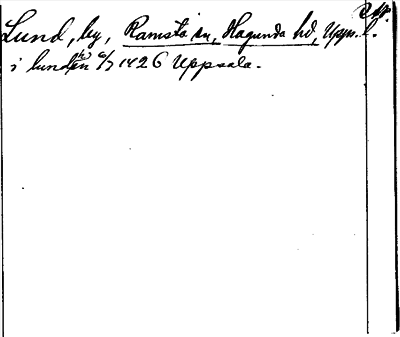 Lund, by, Ramsta sn, Hagunda hd, Upps. l.
i lunden 6/7 1426 Uppsala.